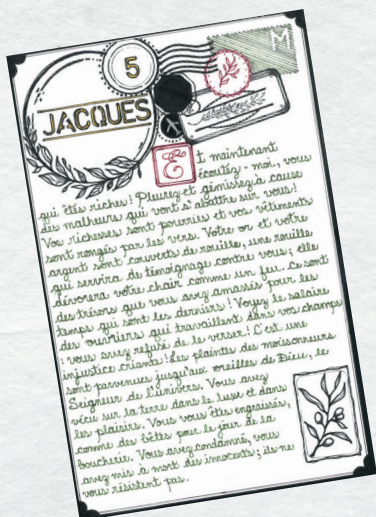 5
M
JACQUES
Et maintenant
écoutez-moi, vous
qui êtes riches! Pleurez et gémissez à cause
des malheurs qui vont s'abattre sur vous!
Vos richesses sont pourries et vos vêtements
sont rongés par les vers. Votre or et votre
argent sont couverts de rouille, une rouille
qui servira de témoignage contre vous; elle
dévorera votre chair comme un feu. Ce sont
des trésors que vous avez amassés pour les
temps qui sont les derniers! Voyez le salaire
des ouvriers qui travaillent dans vos champs
: vous avez refusé de le verser! C'est une
injustice criante! Les plaintes des moissonneurs
sont parvenues jusqu'aux oreilles de Dieu, le
Seigneur de l'univers. Vous avez
vécu sur la terre dans le luxe et dans
les plaisirs. Vous vous êtes engraissés,
comme des bêtes pour le jour de la
boucherie. Vous avez condamné, vous
avez mis à mort des innocents; ils ne
vous résistent pas.